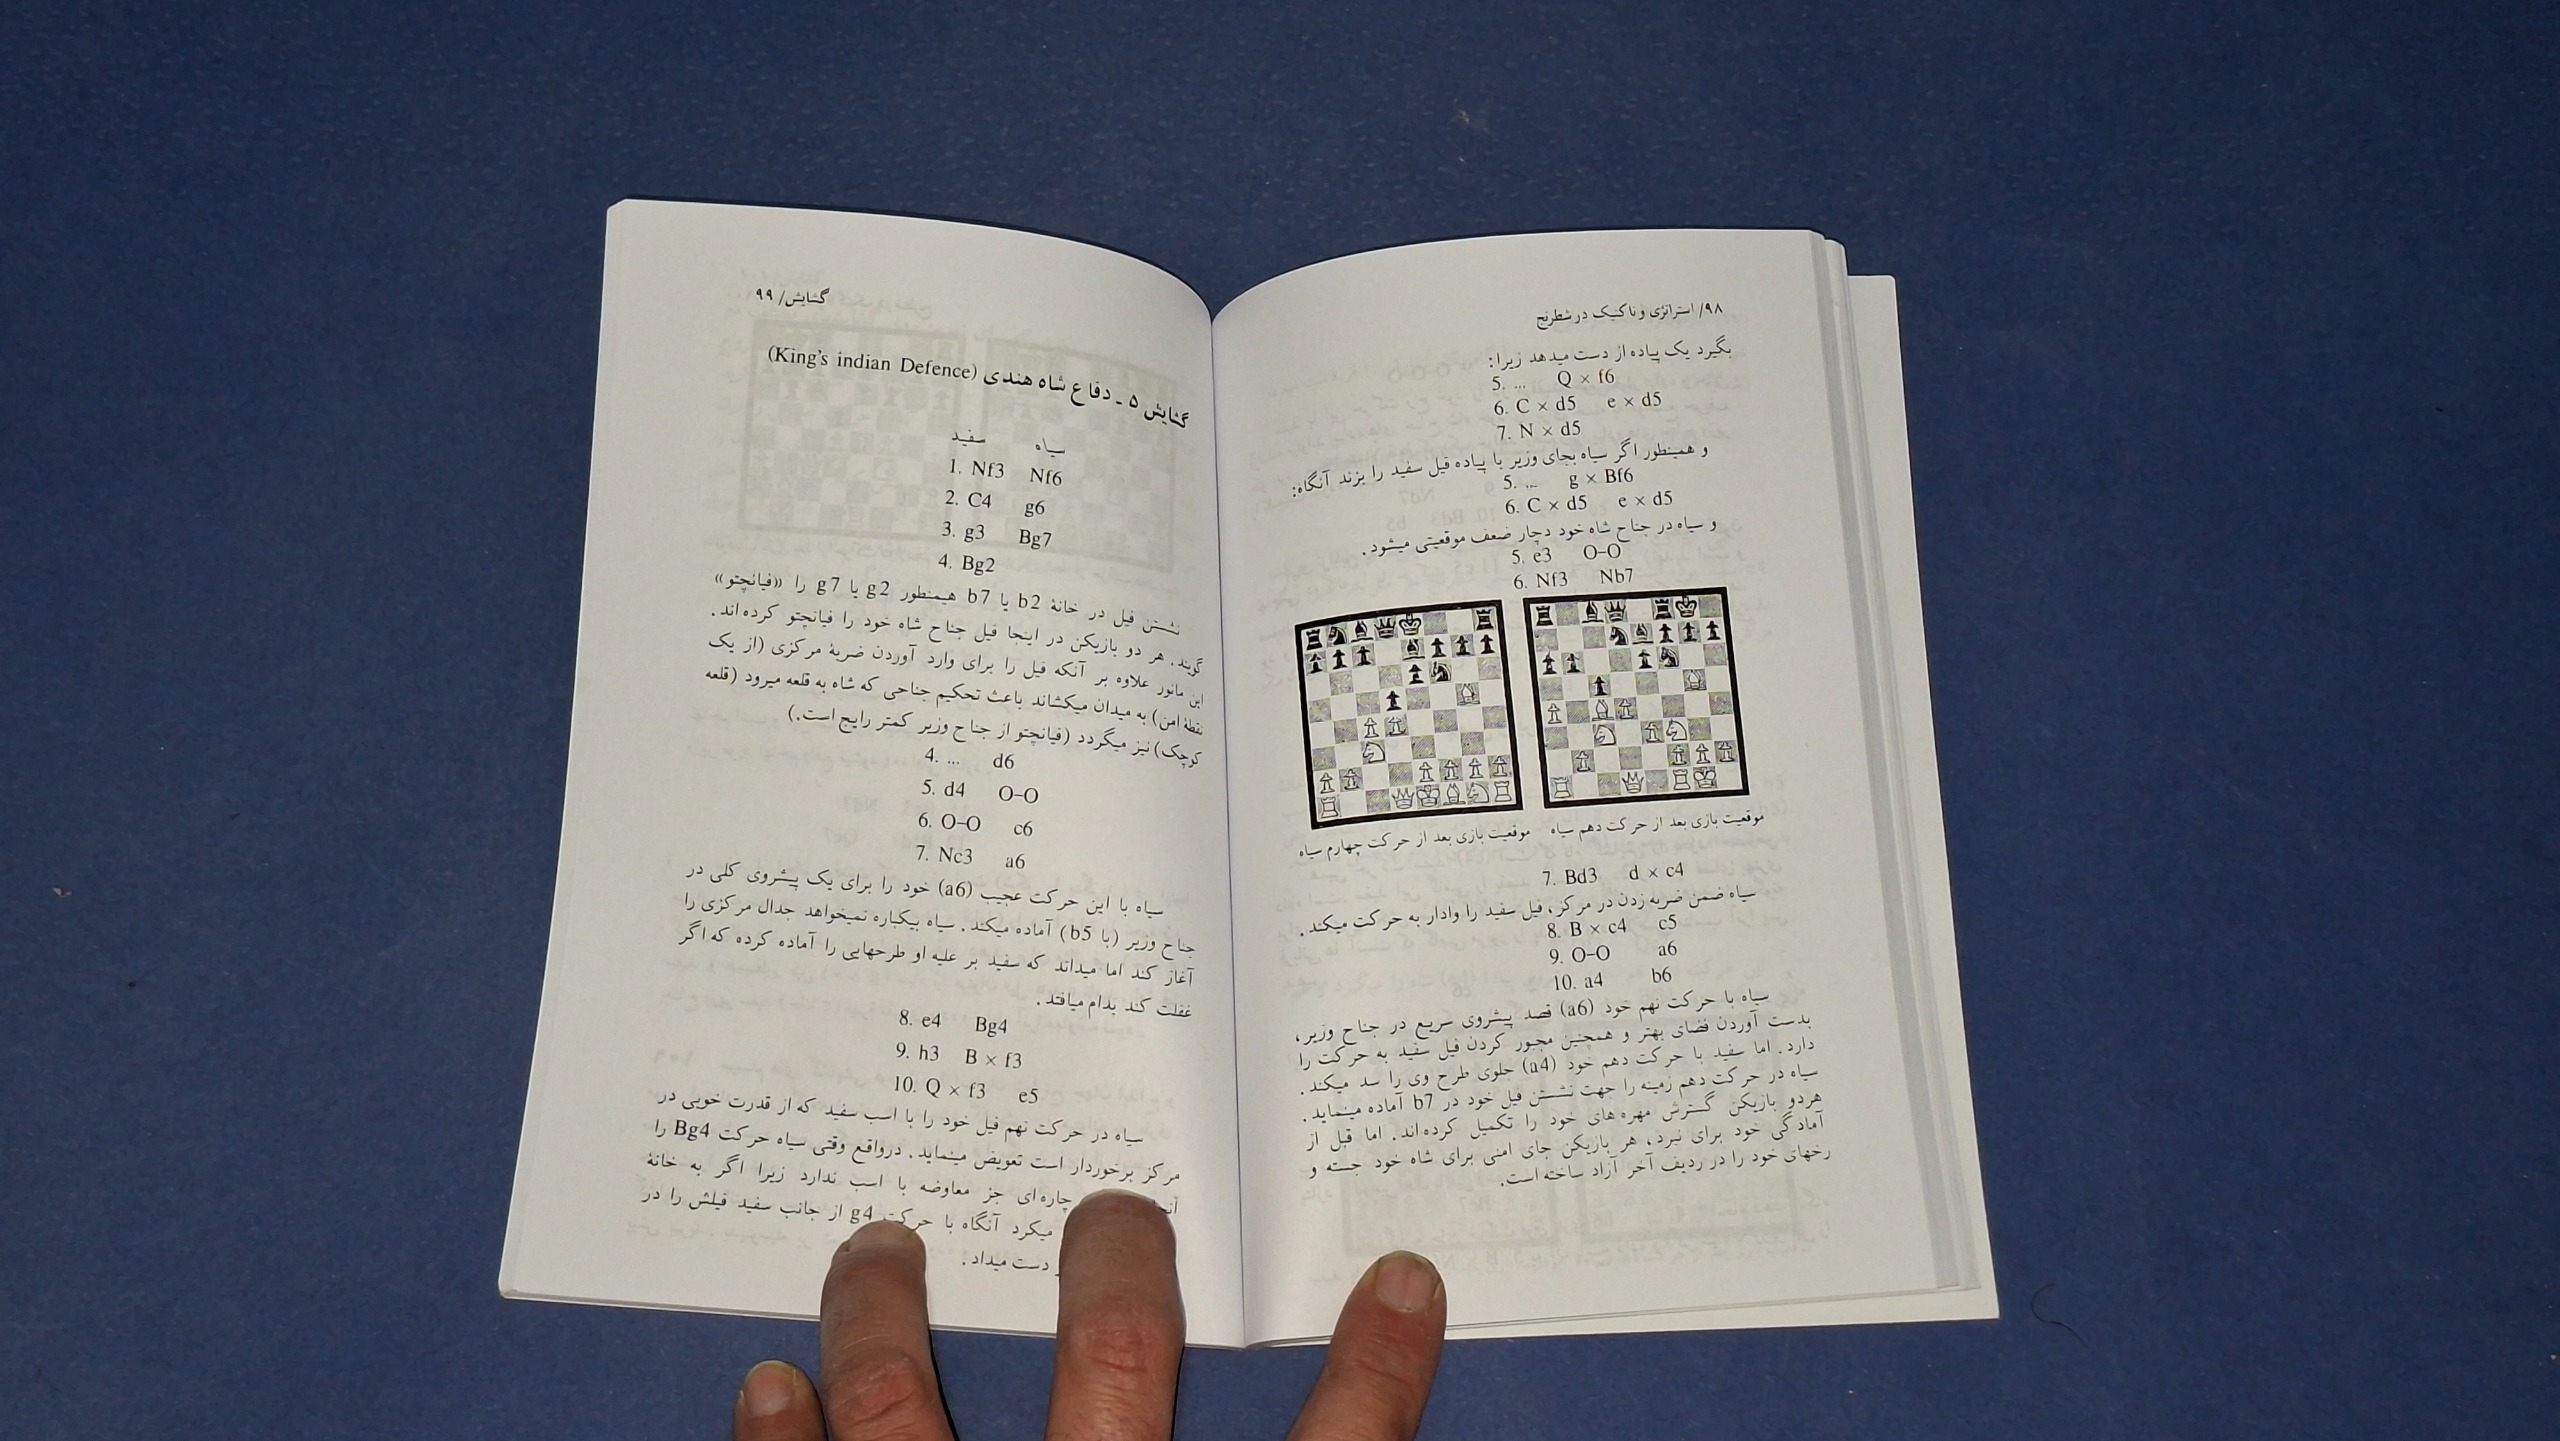 ۹۸/ استراتژی و تاکتیک در شطرنج
بگیرد یک پیاده از دست میدهد زیرا:
5. ... Q × f6
6. C × d5 e × d5
7. N × d5
و همینطور اگر سیاه بجای وزیر با پیاده فیل سفید را بزند آنگاه:
5. ... g × Bf6
6. C × d5 e × d5
و سیاه در جناح شاه خود دچار ضعف موقعیتی میشود.
5. e3 O–O
6. Nf3 Nb7
موقعیت بازی بعد از حرکت دهم سیاه
موقعیت بازی بعد از حرکت چهارم سیاه
7. Bd3 d × c4
سیاه ضمن ضربه زدن در مرکز، فیل سفید را وادار به حرکت میکند.
8. B × c4 c5
9. O–O a6
10. a4 b6
سیاه با حرکت نهم خود (a6) قصد پیشروی سریع در جناح وزیر،
بدست آوردن فضای بهتر و همچنین مجبور کردن فیل سفید به حرکت را
دارد. اما سفید با حرکت دهم خود (a4) جلوی طرح وی را سد میکند.
سیاه در حرکت دهم زمینه را جهت نشستن فیل خود در b7 آماده مینماید.
هردو بازیکن گسترش مهره های خود را تکمیل کرده اند. اما قبل از
آمادگی خود برای نبرد، هر بازیکن جای امنی برای شاه خود جسته و
رخهای خود را در ردیف آخر آزاد ساخته است.
گشایش/ ۹۹
گشایش ۵ ـ دفاع شاه هندی (King's indian Defence)
سفید سیاه
1. Nf3 Nf6
2. C4 g6
3. g3 Bg7
4. Bg2
نشستن فیل در خانهٔ b2 یا b7 هیمنطور g2 یا g7 را «فیانچتو»
گویند. هر دو بازیکن در اینجا فیل جناح شاه خود را فیانچتو کرده اند.
این مانور علاوه بر آنکه فیل را برای وارد آوردن ضربهٔ مرکزی (از یک
نقطهٔ امن) به میدان میکشاند باعث تحکیم جناحی که شاه به قلعه میرود (قلعه
کوچک) نیز میگردد (فیانچتو از جناح وزیر کمتر رایج است.)
4. ... d6
5. d4 O–O
6. O–O c6
7. Nc3 a6
سیاه با این حرکت عجیب (a6) خود را برای یک پیشروی کلی در
جناح وزیر (با b5) آماده میکند. سیاه بیکباره نمیخواهد جدال مرکزی را
آغاز کند اما میداند که سفید بر علیه او طرحهایی را آماده کرده که اگر
غفلت کند بدام میافتد.
8. e4 Bg4
9. h3 B × f3
10. Q × f3 e5
سیاه در حرکت نهم فیل خود را با اسب سفید که از قدرت خوبی در
مرکز برخوردار است تعویض مینماید. درواقع وقتی سیاه حرکت Bg4 را
چاره ای جز معاوضه با اسب ندارد زیرا اگر به خانهٔ
میکرد آنگاه با حرکت g4 از جانب سفید فیلش را در
دست میداد.